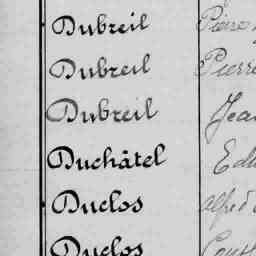 Dubreil Pierre
Dubreil Pierre
Dubreil Jea
Duchâtel Edu
Duclos alfred
Duclos Const